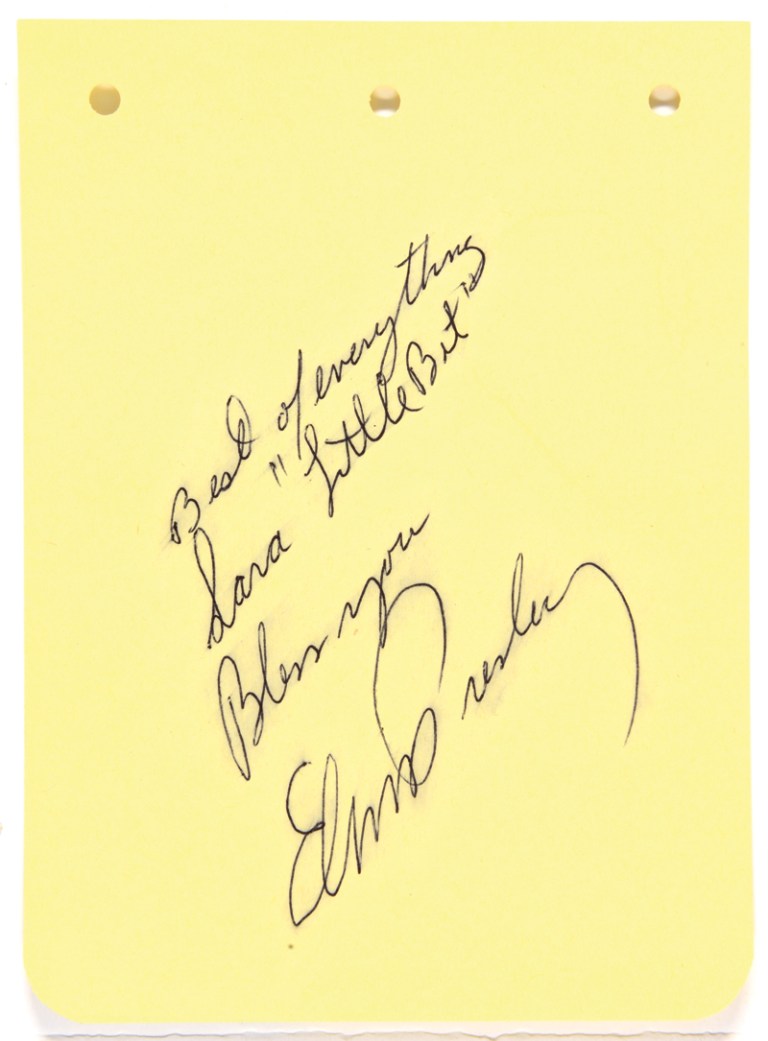 Best of everything
Lara "Little Bit"
Bless you
Elvis Presley